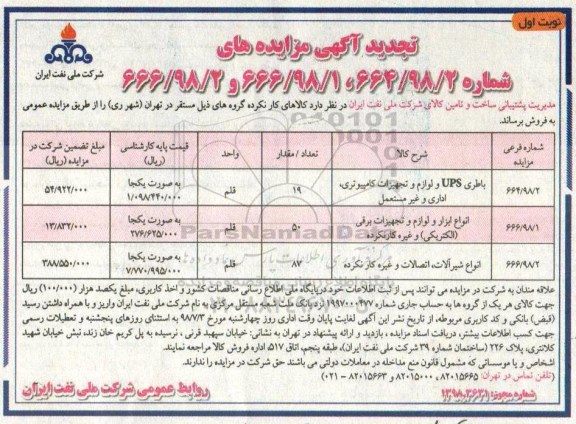 نوبت اول
تجدید آگهی مزایده های
شماره ۶۶۴/۹۸/۲، ۶۶۶/۹۸/۱ و ۶۶۶/۹۸/۲
شرکت ملی نفت ایران
مدیریت پشتیبانی ساخت و تامین کالای شرکت ملی نفت ایران در نظر دارد کالاهای کار نکرده گروه های ذیل مستقر در تهران (شهر ری) را از طریق مزایده عمومی
به فروش برساند.
شماره فرعی مزایده | شرح کالا | تعداد / مقدار | واحد | قیمت پایه کارشناسی (ریال) | مبلغ تضمین شرکت در مزایده (ریال)
۶۶۴/۹۸/۲ | باطری UPS و لوازم و تجهیزات کامپیوتری، اداری و غیر مستعمل | ۱۹ | قلم | به صورت یکجا ۱/۰۹۸/۴۴۰/۰۰۰ | ۵۴/۹۲۲/۰۰۰
۶۶۶/۹۸/۱ | انواع ابزار و لوازم و تجهیزات برقی (الکتریکی) و غیره کارنکرده | ۵۰ | قلم | به صورت یکجا ۲۷۶/۶۲۵/۰۰۰ | ۱۳/۸۳۲/۰۰۰
۶۶۶/۹۸/۲ | انواع شیرآلات، اتصالات و غیره کار نکرده | ۸۷ | قلم | به صورت یکجا ۷/۷۷۰/۹۹۵/۰۰۰ | ۳۸۸/۵۵۰/۰۰۰
ParsNamadData
علاقه مندان به شرکت در مزایده می توانند پس از ثبت اطلاعات خود در پایگاه ملی اطلاع رسانی مناقصات کشور و اخذ کاربری، مبلغ یکصد هزار (۱۰۰/۰۰۰) ریال
جهت کالای هر یک از گروه ها به حساب جاری شماره ۱۹۹۷۰۰۰۴۷۷ نزد بانک ملت شعبه مستقل مرکزی به نام شرکت ملی نفت ایران واریز و با همراه داشتن رسید
(فیش) بانکی و کد کاربری مربوطه، از تاریخ نشر این آگهی لغایت پایان وقت اداری روز چهارشنبه مورخ ۹۸/۷/۳ به استثنای روزهای پنجشنبه و تعطیلات رسمی
جهت کسب اطلاعات بیشتر، دریافت اسناد مزایده ، بازدید و ارائه پیشنهاد در تهران به نشانی: خیابان سپهبد قرنی ، نرسیده به پل کریم خان زند، نبش خیابان شهید
کلانتری، پلاک ۲۲۶ (ساختمان شماره ۳۹ شرکت ملی نفت ایران)، طبقه پنجم، اتاق ۵۱۷، اداره فروش کالا مراجعه نمایند.
اشخاص و یا موسساتی که مشمول قانون منع مداخله در معاملات دولتی می باشند حق شرکت در مزایده را ندارند.
(تلفن تماس در تهران: ۸۲۰۱۵۶۶۵ ، ۸۲۰۱۵۰۰۰ و ۸۲۰۱۵۶۶۳ - ۰۲۱)
شماره مجوز: ۱۳۹۸.۳۶۳۱
روابط عمومی شرکت ملی نفت ایران